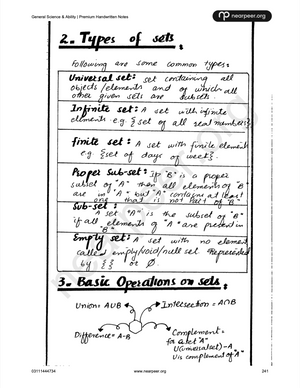 General Science & Ability | Premium Handwritten Notes
nearpeer.org
2. Types of sets:
Following are some common types:
Universal set: set containing all
objects/elements and of which all
other given sets are subsets
Infinite set: A set with infinite
elements e.g {set of all real numbers}
finite set: A set with finite element
e.g. {set of days of week}.
Proper Sub-set: If "B" is a proper
subset of "A" then all elements of "B"
are in "A" but "A" contains at least
one that is not part of "B"
Sub-set:
A set "A" is the subset of "B"
if all elements of "A" are present in
"B"
Empty set: A set with no element
called empty/void/null set Represented
by { } or Ø
3. Basic Operations on sets:
Union: A∪B
Intersection = A∩B
Difference = A-B
Complement =
for a set "A"
U(universal set) - A
U is complement of "A"
03111444734
www.nearpeer.org
241